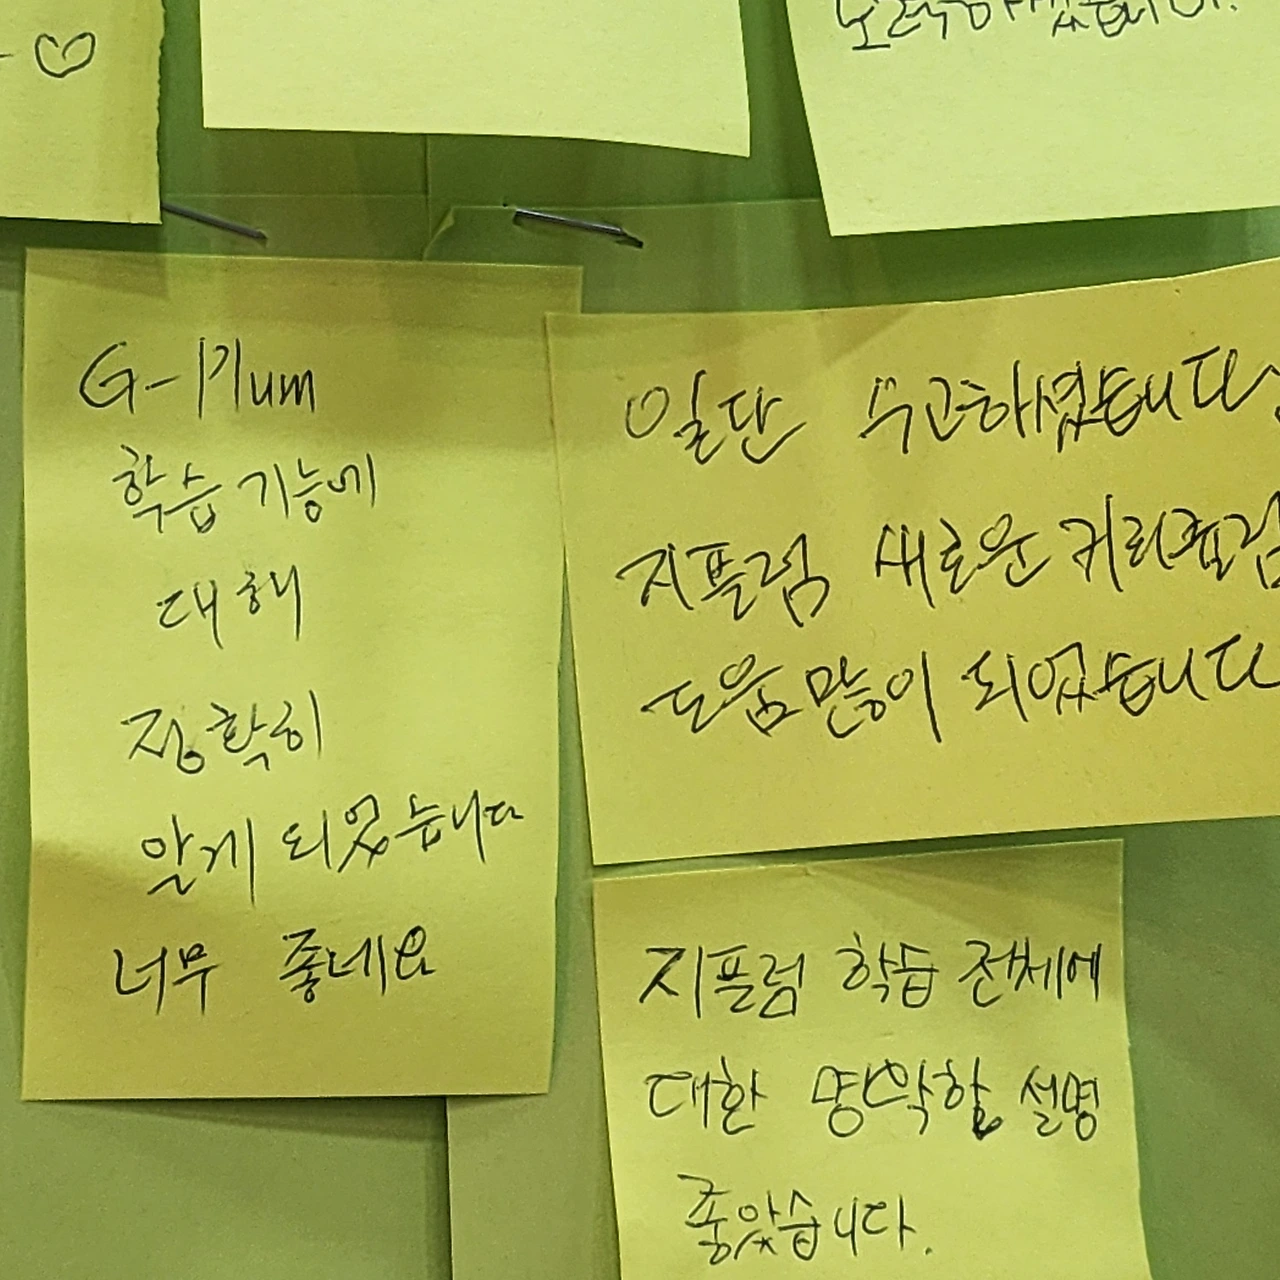 G-Plum
학습기능에
대해
정확히
알게 되었습니다
너무 좋네요
일단 수고하셨습니다
지플럼 새로운 커리큘럼
도움많이 되었습니다
지플럼 학습 전체에
대한 설명
좋았습니다.